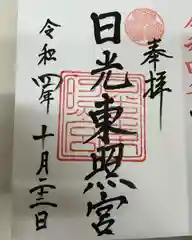 奉拝
日光東照宮
令和四年十月二三日